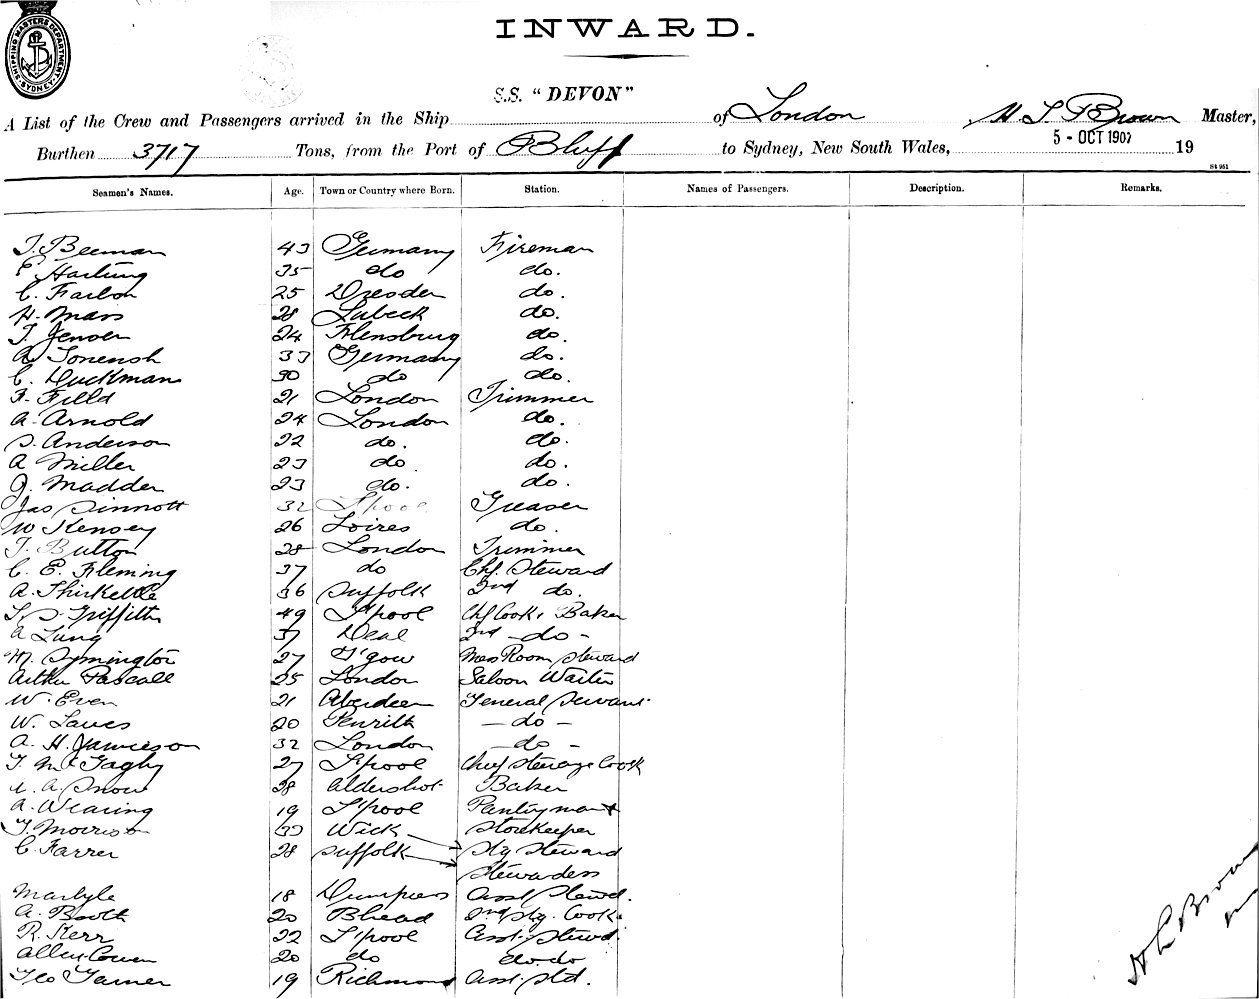 SHIPPING MASTERS DEPARTMENT SYDNEY
INWARD.
S.S. "DEVON"
A List of the Crew and Passengers arrived in the Ship of London H. L Brown Master,
Burthen 3717 Tons, from the Port of Bluff to Sydney, New South Wales, 5 - OCT 1907 19
Seamen's Names. Age. Town or Country where Born. Station. Names of Passengers. Description. Remarks.
Beeman 43 Germany Fireman
Hartung 35 do do.
C. 25 Dresden do.
H. Mars 28 Lubeck do.
24 Flensburg do.
A 33 Germany do.
C. Duckman 30 do do.
F. Field 21 London Trimmer
A. Arnold 24 London do.
S. Anderson 22 do. do.
A Miller 23 do do.
J. Madder 23 do. do.
Jas Sinnott 32 L'pool Greaser
W 26 do.
T. Button 28 London Trimmer
C. E. Fleming 37 do Chf. Steward
A. Thirkettle 36 Suffolk 2nd do.
Griffiths 49 L'pool Chf Cook & Baker
A Lung 37 Deal 2nd - do -
Symington 27 G'gow Mess Room Steward
Arthur Pascall 25 London Saloon Waiter
W. Even 21 Aberdeen General Servant
W. Lawes 20 Penrith - do -
A. H. Jamieson 32 London - do -
27 L'pool Chief Steerage Cook
A. Snow 28 Aldershot Baker
A. Wearing 19 L'pool Pantryman
T. Morrison 33 Wick Storekeeper
C. Farrer 28 Suffolk Stg Steward
Stewardess
18 Asst Stewd.
A. Booth 20 B'head 2nd Stg. Cook.
R. Kerr 22 L'pool Asst. Stewd.
Allen Cowen 20 do do. do
Geo 19 Richmond Asst. Std.
H L Brown